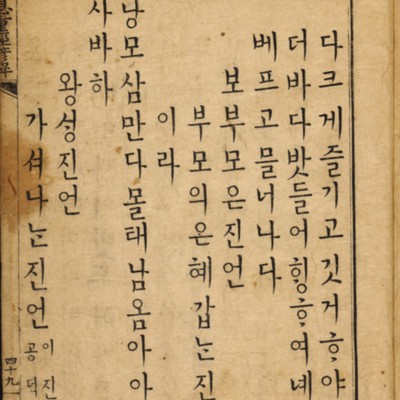 다크게즐기고깃거ᄒᆞ야
더바다밧들어ᄒᆡᆼᄒᆞ여녜
베프고믈너나다
보부모은진언
부모의은혜갑ᄂᆞᆫ진
이라
낭모삼만다몰태남옴아아
사바하
왕성진언
가셔나ᄂᆞᆫ진언
이진
공덕
諺解
四十九